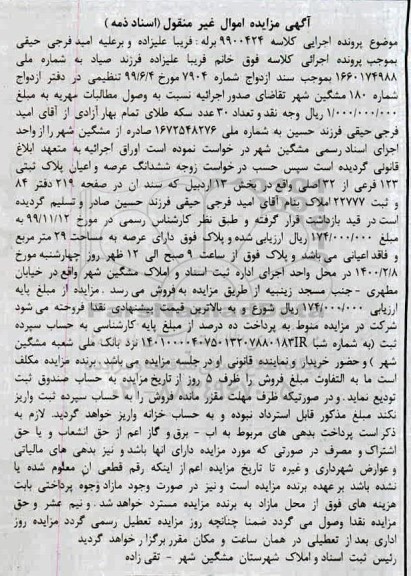 آگهی مزایده اموال غیر منقول (اسناد ذمه )
موضوع پرونده اجرایی کلاسه ۹۹۰۰۴۲۴ برله : فریبا علیزاده و برعلیه امید فرجی حیقی
بموجب پرونده اجرائی کلاسه فوق خانم فریبا علیزاده فرزند صیاد به شماره ملی
۱۶۶۰۱۷۴۹۸۸ بموجب سند ازدواج شماره ۷۹۰۴ مورخ ۹۹/۶/۴ تنظیمی در دفتر ازدواج
شماره ۱۸۰ مشگین شهر تقاضای صدور اجرائیه نسبت به وصول مطالبات مهریه به مبلغ
۱/۰۰۰/۰۰۰/۰۰۰ ریال وجه نقد و تعداد ۳۰ عدد سکه طلای تمام بهار آزادی از آقای امید
فرجی حیقی فرزند حسین به شماره ملی ۱۶۷۲۵۴۸۲۷۶ صادره از مشگین شهر را از واحد
اجرای اسناد رسمی مشگین شهر در خواست نموده است اوراق اجرائیه به متعهد ابلاغ
قانونی گردیده است سپس حسب درخواست زوجه ششدانگ عرصه و اعیان پلاک ثبتی
۱۲۳ فرعی از ۳۲ اصلی واقع در بخش ۱۳ اردبیل که سند ان در صفحه ۲۱۹ دفتر ۸۴
و ثبت ۲۲۷۷۷ املاک بنام آقای امید فرجی حیقی فرزند حسین صادر و تسلیم گردیده
است در قید بازداشت قرار گرفته و طبق نظر کارشناس رسمی در مورخ ۹۹/۱۱/۱۲ به
مبلغ ۱۷۴/۰۰۰/۰۰۰ ریال ارزیابی شده و پلاک فوق دارای عرصه به مساحت ۲۹ متر مربع
و فاقد اعیانی می باشد و پلاک فوق از ساعت ۹ صبح الی ۱۲ ظهر روز چهارشنبه مورخ
۱۴۰۰/۲/۸ در محل واحد اجرای اداره ثبت اسناد و املاک مشگین شهر واقع در خیابان
مطهری - جنب مسجد زینبیه از طریق مزایده به فروش می رسد . مزایده از مبلغ پایه
ارزیابی ۱۷۴/۰۰۰/۰۰۰ ریال شروع و به بالاترین قیمت پیشنهادی نقدا فروخته می شود
شرکت در مزایده منوط به پرداخت ده درصد از مبلغ پایه کارشناسی به حساب سپرده
ثبت (به شماره شبا ۱۴۰۱۰۰۰۰۴۰۷۵۰۱۳۲۰۷۸۸۰۱۸۳IR نزد بانک ملی شعبه مشگین
شهر ) و حضور خریدار و نماینده قانونی او در جلسه مزایده می باشد . برنده مزایده مکلف
است ما به التفاوت مبلغ فروش را ظرف ۵ روز از تاریخ مزایده به حساب صندوق ثبت
تودیع نماید . و در صورتیکه ظرف مهلت مقرر مانده فروش را به حساب سپرده ثبت واریز
نکند مبلغ مذکور قابل استرداد نبوده و به حساب خزانه واریز خواهد گردید. لازم به
ذکر است پرداخت بدهی های مربوط به اب - برق و گاز اعم از حق انشعاب و یا حق
اشتراک و مصرف در صورتی که مورد مزایده دارای انها باشد و نیز بدهی های مالیاتی
و عوارض شهرداری و غیره تا تاریخ مزایده اعم از اینکه رقم قطعی ان معلوم شده یا
نشده باشد بر عهده برنده مزایده است و نیز در صورت وجود مازاد وجوه پرداختی بابت
هزینه های فوق از محل مازاد به برنده مزایده مسترد خواهد شد . و نیم عشر و حق
مزایده نقدا وصول می گردد ضمنا چنانچه روز مزایده تعطیل رسمی گردد مزایده روز
اداری بعد از تعطیلی در همان ساعت و مکان مقرر برگزار خواهد گردید
رئیس ثبت اسناد و املاک شهرستان مشگین شهر - تقی زاده